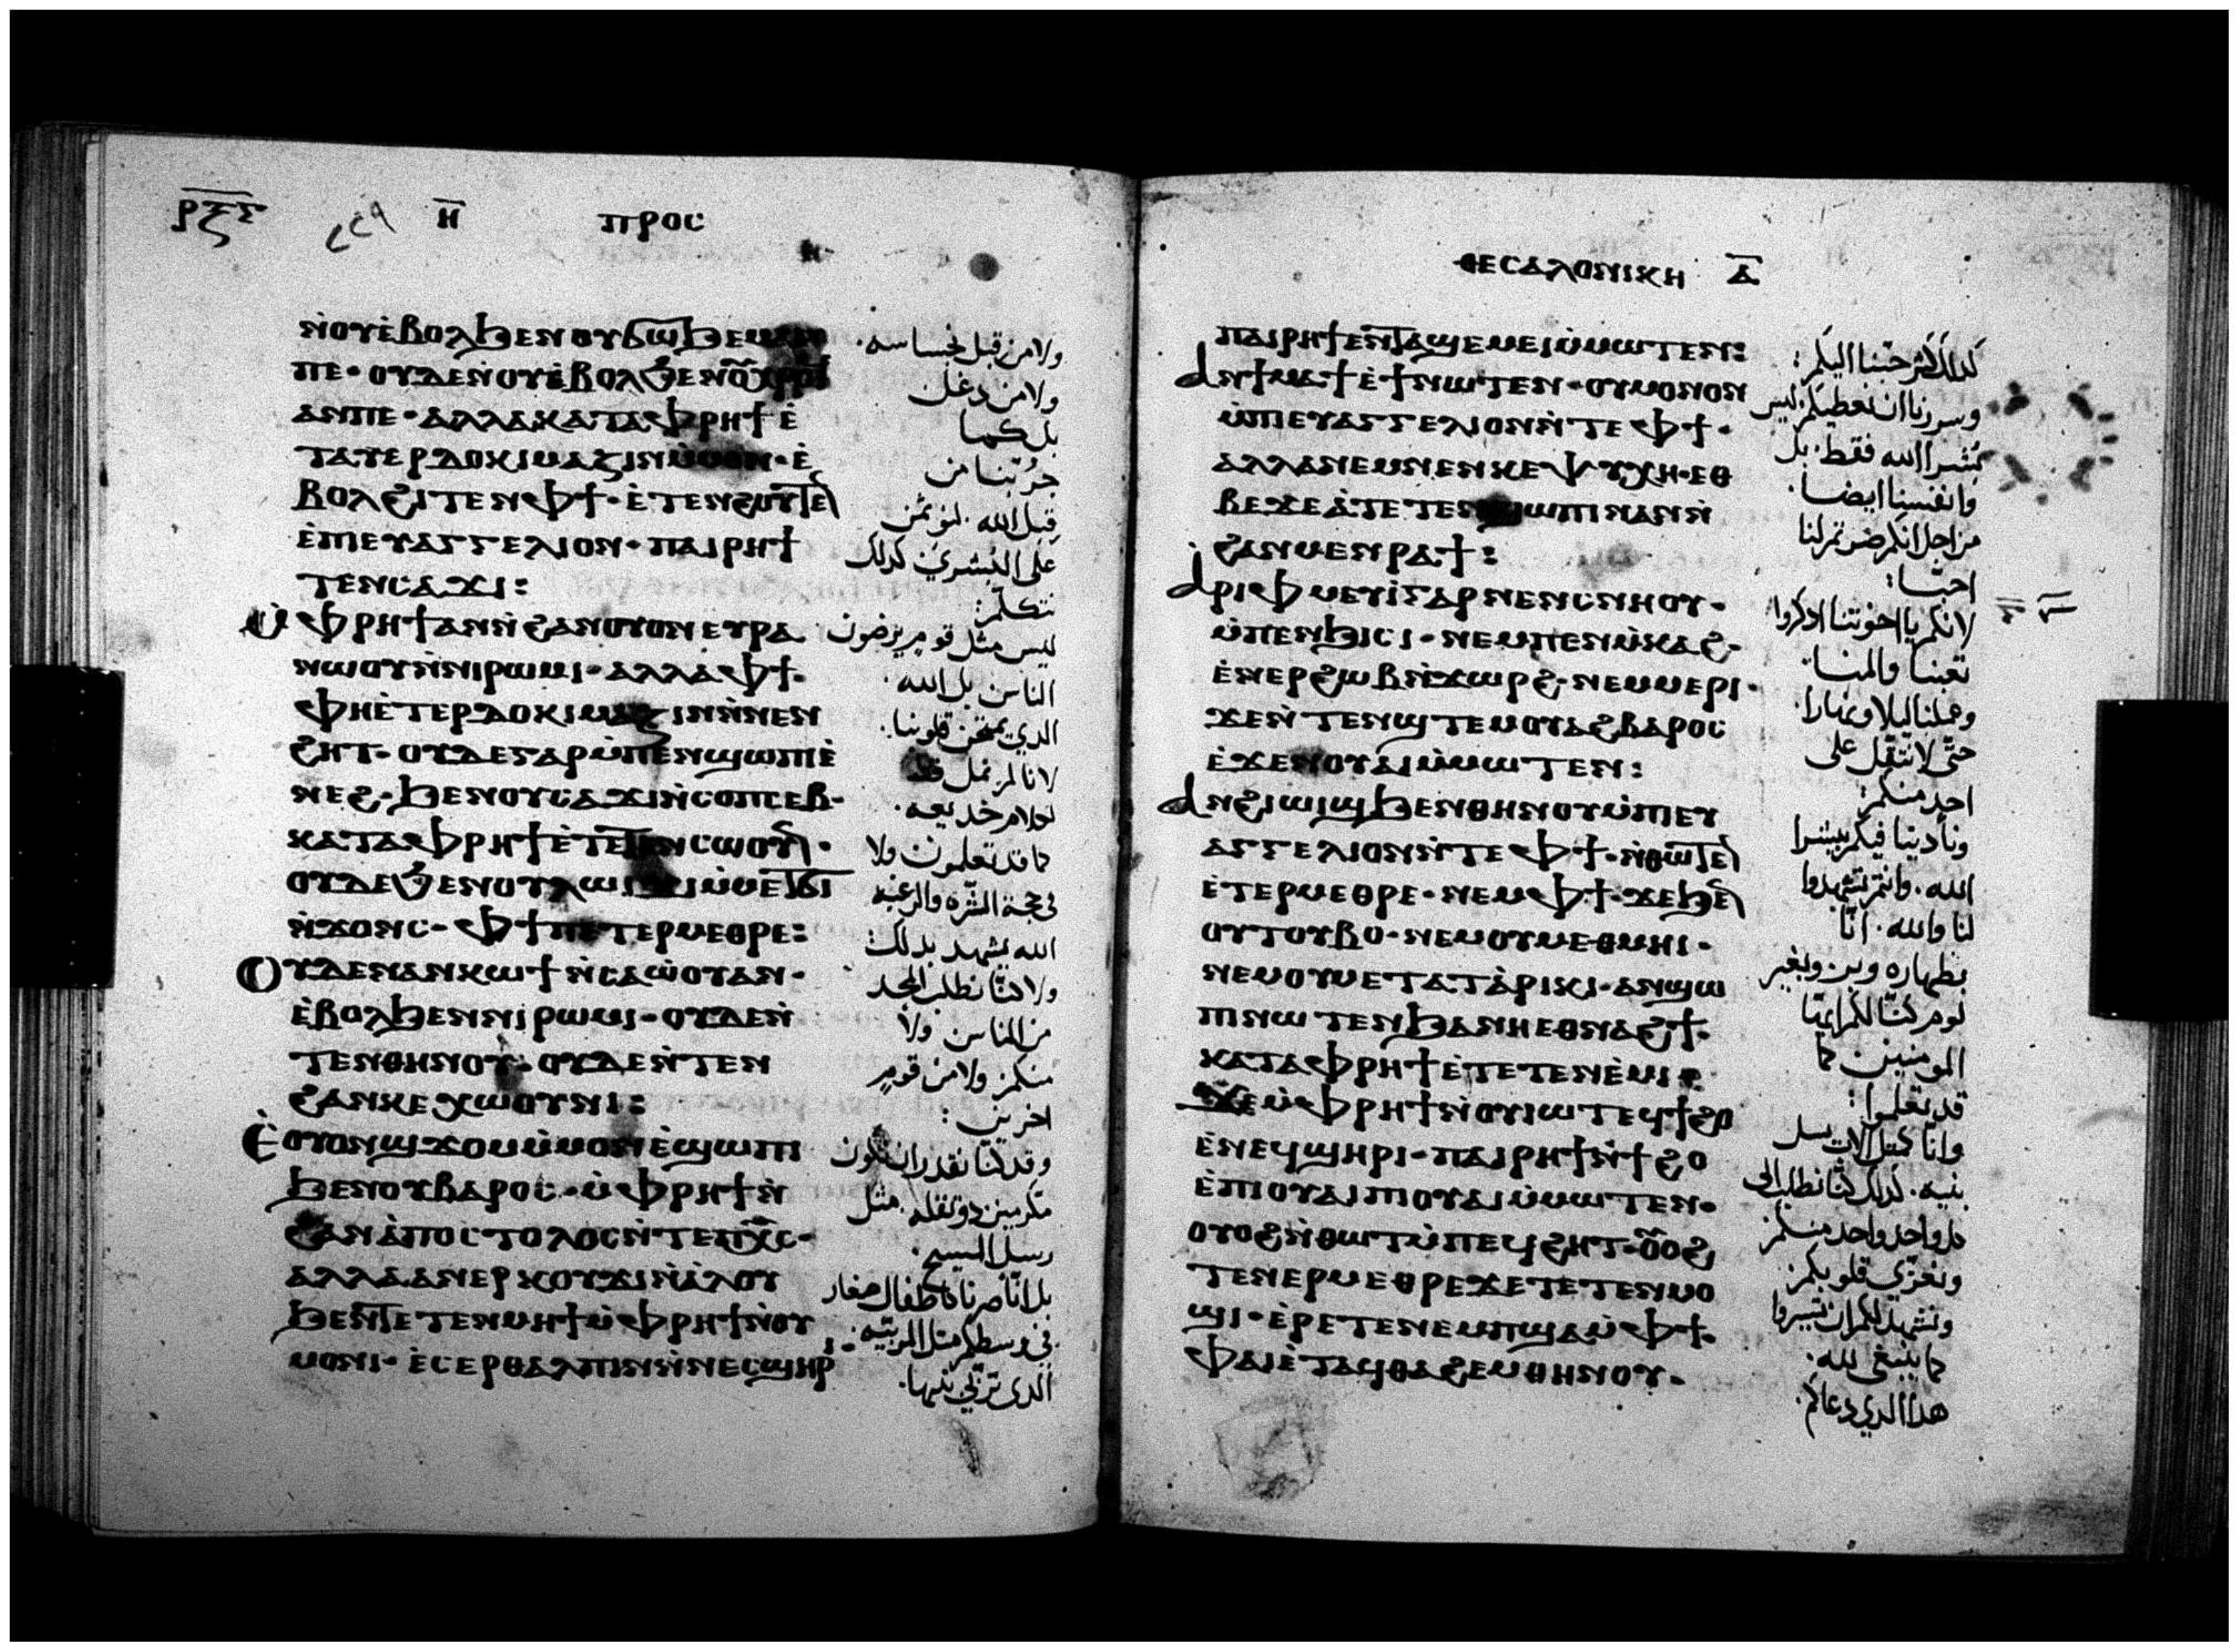 ⲣⲝⲋ ⲏ̅ ⲡⲣⲟⲥ
ⲛ̀ⲟⲩⲉ̀ⲃⲟⲗϧⲉⲛⲟⲩϭⲱϧⲉⲙⲁⲛ
ⲡⲉ· ⲟⲩⲇⲉⲛ̀ⲟⲩⲉ̀ⲃⲟⲗϧⲉⲛ
ⲁⲛⲡⲉ· ⲁⲗⲗⲁⲕⲁⲧⲁⲫⲣⲏϯⲉ̀
ⲧⲁⲩⲉⲣⲇⲟⲕⲓⲙⲁⲍⲓⲛⲙ̀ⲙⲟⲛ·ⲉ̀
ⲃⲟⲗϩⲓⲧⲉⲛⲫϯ·ⲉ̀ⲧⲉⲛϩⲟⲩⲧⲉⲛ
ⲉ̀ⲡⲉⲩⲁⲅⲅⲉⲗⲓⲟⲛ· ⲡⲁⲓⲣⲏϯ
ⲧⲉⲛⲥⲁϫⲓ:
ⲙ̀ⲫⲣⲏϯⲁⲛⲛ̀ϩⲁⲛⲟⲩⲟⲛⲉⲩⲣⲁ
ⲛⲱⲟⲩⲛ̀ⲛⲓⲣⲱⲙⲓ· ⲁⲗⲗⲁⲫϯ·
ⲫⲏⲉ̀ⲧⲉⲣⲇⲟⲕⲓⲙⲁⲍⲓⲛⲛ̀ⲛⲉⲛ
ϩⲏⲧ· ⲟⲩⲇⲉⲅⲁⲣⲙ̀ⲡⲉⲛϣⲱⲡⲓⲉ̀
ⲛⲉϩ· ϧⲉⲛⲟⲩⲥⲁϫⲓⲛ̀ⲥⲟⲡⲥⲉⲃ·
ⲕⲁⲧⲁⲫⲣⲏϯⲉ̀ⲧⲉⲧⲉⲛⲥⲱⲟⲩⲛ·
ⲟⲩⲇⲉϧⲉⲛⲟⲩⲗⲱⲓϫⲓⲙ̀ⲙⲉⲧϭⲓ
ⲛ̀ϫⲟⲛⲥ· ⲫϯⲡⲉⲧⲉⲣⲙⲉⲑⲣⲉ:
ⲟⲩⲇⲉⲛⲁⲛⲕⲱϯⲛ̀ⲥⲁⲱ̀ⲟⲩⲁⲛ·
ⲉ̀ⲃⲟⲗϧⲉⲛⲛⲓⲣⲱⲙⲓ· ⲟⲩⲇⲉⲛ̀
ⲧⲉⲛⲑⲏⲛⲟⲩ· ⲟⲩⲇⲉⲛ̀ⲧⲉⲛ
ϩⲁⲛⲕⲉⲭⲱⲟⲩⲛⲓ:
ⲉ̀ⲟⲩⲟⲛϣϫⲟⲙⲙ̀ⲙⲟⲛⲉ̀ϣⲱⲡⲓ
ϧⲉⲛⲟⲩⲃⲁⲣⲟⲥ· ⲙ̀ⲫⲣⲏϯⲛ̀
ϩⲁⲛⲁ̀ⲡⲟⲥⲧⲟⲗⲟⲥⲛ̀ⲧⲉⲡⲭ̅ⲥ·
ⲁⲗⲗⲁⲁⲛⲉⲣⲕⲟⲩϫⲓⲛ̀ⲁ̀ⲗⲟⲩ
ϧⲉⲛⲧⲉⲧⲉⲛⲙⲏϯⲙ̀ⲫⲣⲏϯⲛ̀ⲟⲩ
ⲙⲟⲛⲓ· ⲉ̀ⲥⲉⲣⲑⲁⲗⲡⲓⲛⲛ̀ⲛⲉⲥϣⲏⲣⲓ
ولا من قبل نجاسه·
ولا من دغل
بل كما
جرّبنا من
قبل الله· لنوتمن
على البشرى كدلك
نتكلم:
ليس مثل قوم يرضون
الناس بل الله·
الدي يمتحن قلوبنا·
لانا لم نمل قط
لكلام خديعه·
كما قد تعلمون ولا
في حجة الشّره والرغبه
الله يشهد بدلك
ولا كنّا نطلب المجد
من الناس ولا
منكم ولا من قوم
اخرين:
وقد كنّا نقدر ان نكون
مكرمين دو ثقله· مثل
رسل المسيح·
بل انّا صرنا كاطفال صغار
في وسطكم مثل المربّيه·
الدى تربّي بنيها·
ⲑⲉⲥⲁⲗⲟⲛⲓⲕⲏ ⲁ̅
ⲡⲁⲓⲣⲏϯⲉⲛϭⲁϣⲉⲙⲉⲓⲙ̀ⲙⲱⲧⲉⲛ:
ⲁⲛϯⲙⲁϯⲉ̀ϯⲛⲱⲧⲉⲛ· ⲟⲩⲙⲟⲛⲟⲛ
ⲙ̀ⲡⲉⲩⲁⲅⲅⲉⲗⲓⲟⲛⲛ̀ⲧⲉⲫϯ·
ⲁⲗⲗⲁⲛⲉⲙⲛⲉⲛⲕⲉⲯⲩⲭⲏ·ⲉⲑ
ⲃⲉϫⲉⲁ̀ⲧⲉⲧⲉⲛϣⲱⲡⲓⲛⲁⲛⲛ̀
ϩⲁⲛⲙⲉⲛⲣⲁϯ:
ⲁⲣⲓⲫⲙⲉⲩⲓ̀ⲅⲁⲣⲛⲉⲛⲥⲛⲏⲟⲩ·
ⲙ̀ⲡⲉⲛϧⲓⲥⲓ· ⲛⲉⲙⲡⲉⲛⲙ̀ⲕⲁϩ·
ⲉ̀ⲛⲉⲣϩⲱⲃⲛ̀ϫⲱⲣϩ· ⲛⲉⲙⲙⲉⲣⲓ·
ϫⲉⲛ̀ⲧⲉⲛϣⲧⲉⲙⲟⲩⲁϩⲃⲁⲣⲟⲥ
ⲉ̀ϫⲉⲛⲟⲩⲁⲓⲙ̀ⲙⲱⲧⲉⲛ:
ⲁⲛϩⲓⲱⲓϣϧⲉⲛⲑⲏⲛⲟⲩⲙ̀ⲡⲉⲩ
ⲁⲅⲅⲉⲗⲓⲟⲛⲛ̀ⲧⲉⲫϯ·ⲛ̀ⲑⲱⲧⲉⲛ
ⲉ̀ⲧⲉⲣⲙⲉⲑⲣⲉ· ⲛⲉⲙⲫϯ· ϫⲉϧⲉⲛ
ⲟⲩⲧⲟⲩⲃⲟ· ⲛⲉⲙⲟⲩⲙⲉⲑⲙⲏⲓ·
ⲛⲉⲙⲟⲩⲙⲉⲧⲁⲧⲁ̀ⲣⲓⲕⲓ· ⲁⲛϣⲱ
ⲡⲓⲛⲱⲧⲉⲛϧⲁⲛⲏⲉⲑⲛⲁϩϯ·
ⲕⲁⲧⲁⲫⲣⲏϯⲉ̀ⲧⲉⲧⲉⲛⲉ̀ⲙⲓ:
ϫⲉⲙ̀ⲫⲣⲏϯⲛ̀ⲟⲩⲓⲱⲧⲉϥϯϩⲟ
ⲉ̀ⲛⲉϥϣⲏⲣⲓ· ⲡⲁⲓⲣⲏϯⲛ̀ϯϩⲟ
ⲉ̀ⲡⲓⲟⲩⲁⲓⲡⲓⲟⲩⲁⲓⲙ̀ⲙⲱⲧⲉⲛ·
ⲟⲩⲟϩⲛ̀ⲑⲱⲧⲙ̀ⲡⲉϥϩⲏⲧ·ⲟⲩⲟϩ
ⲧⲉⲛⲉⲣⲙⲉⲑⲣⲉϫⲉⲧⲉⲧⲉⲛⲙⲟ
ϣⲓ· ⲉ̀ⲣⲉⲧⲉⲛⲉⲙⲡϣⲁⲙ̀ⲫϯ·
ⲫⲁⲓⲉ̀ⲧⲁϥⲑⲁϩⲉⲙⲑⲏⲛⲟⲩ·
كدلك كثر حبّنا اليكم:
وسررنا ان نعطيكم ليس
بُشرا الله فقط· بل
وانفسنا ايضا·
من اجل انكم ضرتم لنا
احبّا:
لانكم يا اخوتنا ادكروا
تعبنا والمنا·
وعملنا ليلا ونهارا·
حتّى لا نثقّل على
احد منكم:
ونادينا فيكم ببشرا
الله· وانتم تشهدوا
لنا والله· انّا
بطهاره وبر وبغير
لوم كنّا لكم ايّها
المومنين كما
قد تعلموا:
وانّا كمثل الاب يسل
بنيه· كدلك كنّا نطلب الى
كل واحد واحد منكم
ونعزّي قلوبكم
ونشهد لكم ان تسيروا
كما ينبغي لله·
هدا الدي دعاكم·